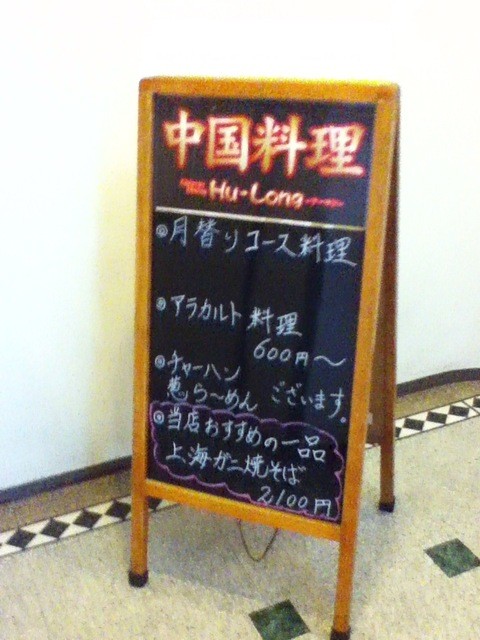 中国料理
Hu-Long
◎月替りコース料理
◎アラカルト 料理
600円〜
◎チャーハン
葱ら〜めん ございます。
◎当店おすすめの一品
上海ガニ焼そば
2,100円